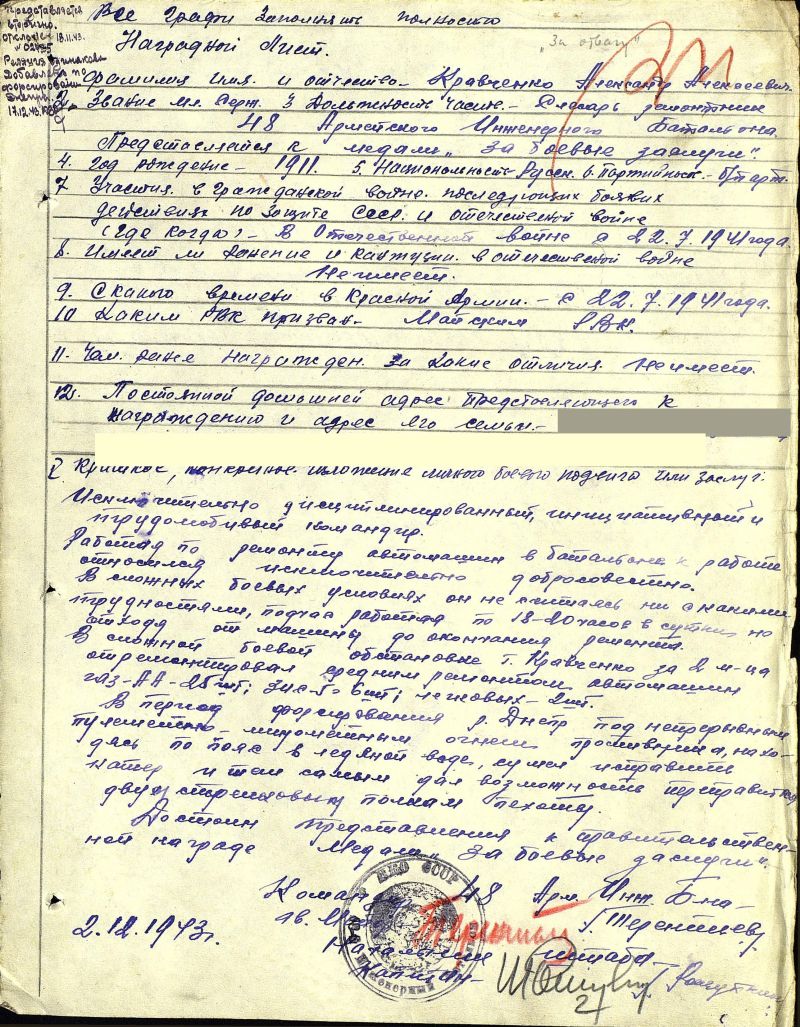 Представляется
вторично.
отклонен 18.11.43.
№ 02435
Добавлен по
форсированию
Днепра.
17.12.43.
Все графи заполнять полностю
Наградной Лист.
"За отвагу"
1. Фамилия имя. и отчество - Кравченко Александр Алексеевич.
2. Звание мл. Серж. 3 Должность часть. - Слесарь ремонтник
48 Армейского Инженерного Баталъона.
Предстоеляется к медали „За боевые заслуги".
4. Год рождение - 1911. 5. Национольность Русск. 6. Партийность. - б/парт.
7 Участия. в Гражданской войне. последующих боявих
действиях по защите Ссср. и отечественой войне
(где когда) - В Отечественной войне с 22.7.1941 года.
8. Имеет ли ранение и кантузии. в отечественой войне
Не имеет.
9. С какого времени в Красной Армии. - с 22.7.1941 года.
10 Каким РВК призван - Майским РВК.
11. Чем. ранее награжден. за какие отличия. Не имеет.
12. Постоянной домашней адрес представляющего к
награждению и адрес его семьи. -
I Краткое, конкретное изложение личного боевого подвига или заслуг:
Исключительно дисциплинированный, инициативный и
трудолюбивый командир.
Работая по ремонту автомашин в батальоне к работе
относился исключительно добросовестно.
В сложных боевых условиях он не считаясь ни с какими
трудностями, подчас работая по 18-20 часов в сутки, не
отходя от машины до окончания ремонта.
В сложной боевой обстановке т. Кравченко за 2 м-ца
отремонтировал средним ремонтом автомашин
газ-АА - 25 шт; Зис-5 - 6 шт; легковых - 2 шт.
В период форсирования р. Днепр под непрерывным
пулеметно-минометным огнем противника, нахо-
дясь по пояс в ледяной воде, сумел исправить
катер и тем самым дал возможность переправиться
двум стрелковым полкам пехоты.
Достоин представления к правительствен-
ной награде Медали „За боевые заслуги".
Командир 48 Арм. Инж. Б-на -
гв. М /Терентьев/
2.12.1943 г.
Начальник штаба
Капитан -
НКО СССР